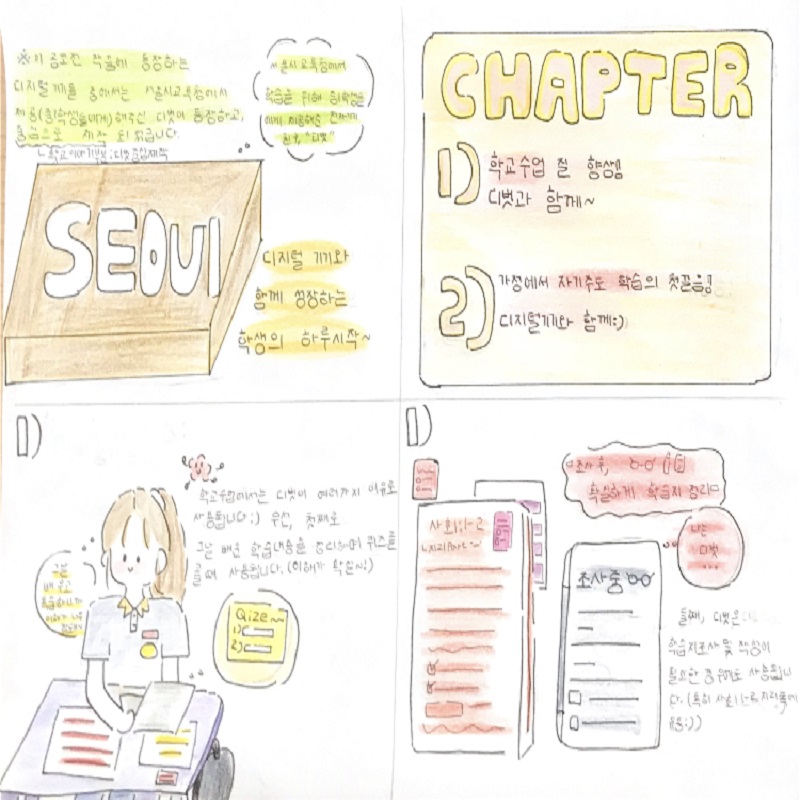 ※이 공모전 작품에 등장하는
디지털기기들 중에서는 서울시교육청에서
제공(중학생들에게)해주신 디벗이 등장하고,
중심으로 제작 되었습니다.
서울시교육청에서
학습을 위해 중학생들
에게 제공해주신 전자기기
친구, "디벗"
SEOUl
디지털 기기와
함께 성장하는
학생의 하루시작~
CHAPTER
1) 학교수업 질 향상
디벗과 함께~
2) 가정에서 자기주도 학습의 첫걸음!
디지털기기와 함께:)
1)
학교수업에서는 디벗이 여러가지 이유로
사용됩니다:) 우선, 첫째로
그날 배운 학습내용을 정리하며 퀴즈를
풀 때 사용됩니다.(이해가 쏙쏙~!)
그날
배우고
Qize~~
1)
2)
1)
조사 후,
확실하게 학습지 정리
사회
나는
디벗
...
조사중
둘째, 디벗은
학습지조사 및 작성이
필요한 경우에도 사용됩니
다.(특히 사회
유용:))